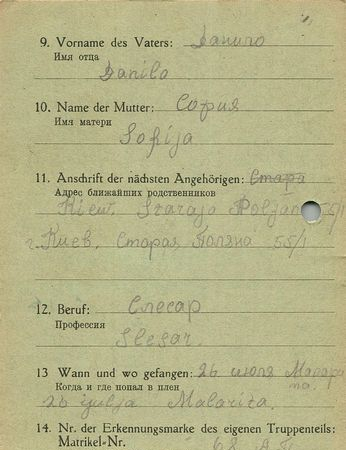 9. Vorname des Vaters: Данило
Имя отца
Danilo
10. Name der Mutter: София
Имя матери
Sofija
11. Anschrift der nächsten Angehörigen: Стара
Адрес ближайших родственников
Kiew. Staraja Poljana 55/1
г. Киев, Старая Поляна 55/1
12. Beruf: Слесар
Профессия
Slesar.
13 Wann und wo gefangen: 26 июля
Когда и где попал в плен
26 julja Malariza.
14. Nr. der Erkennungsmarke des eigenen Truppenteils:
Matrikel-Nr.